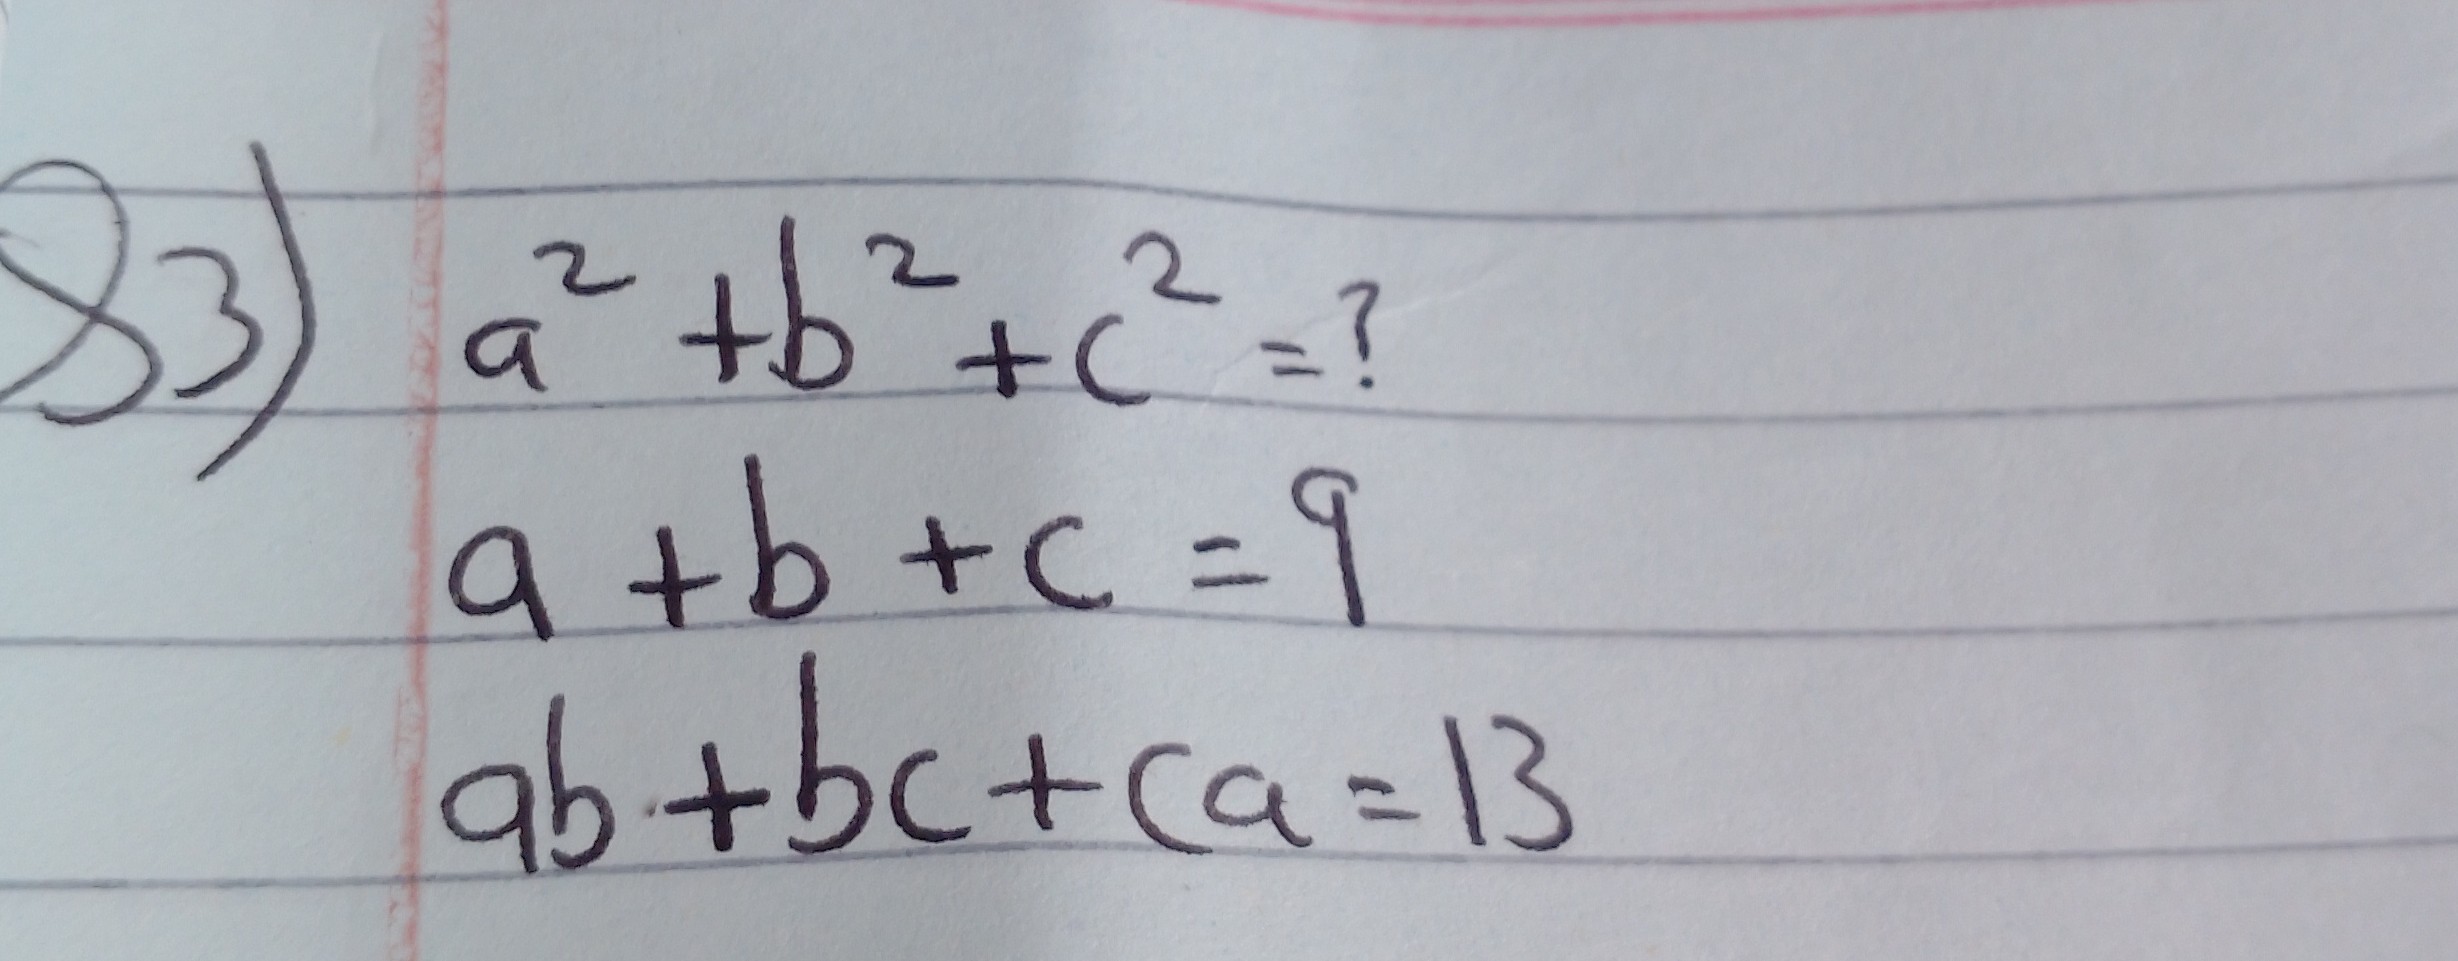 83) a² + b² + c² = ?
a + b + c = 9
ab + bc + ca = 13